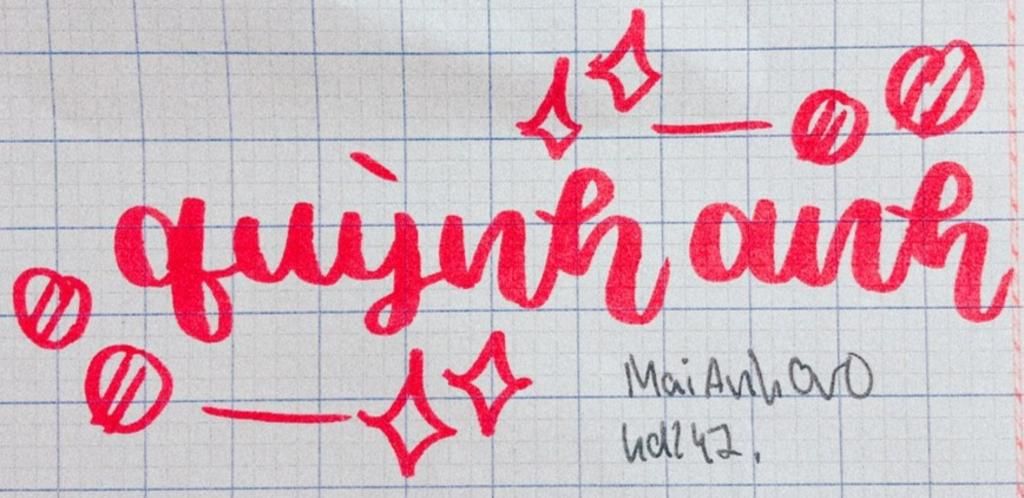 quỳnh anh
MaiAnh OvO
hd247.